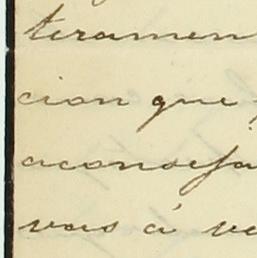 teramen
cion que
aconseja
vas á ve